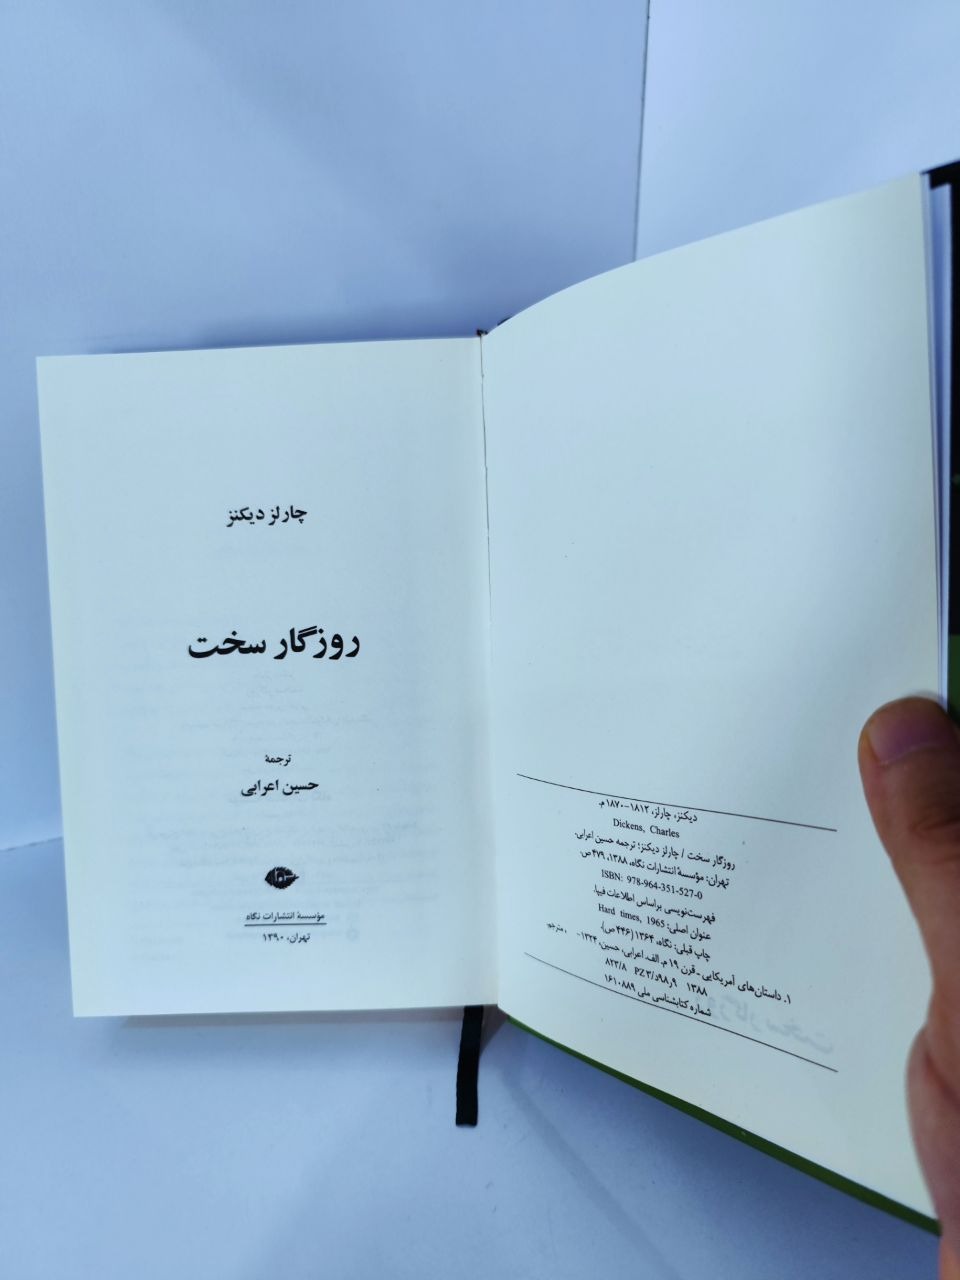 دیکنز، چارلز، ۱۸۱۲-۱۸۷۰ م.
Dickens, Charles
روزگار سخت / چارلز دیکنز؛ ترجمه حسین اعرابی.
تهران: مؤسسهٔ انتشارات نگاه، ۱۳۸۸، ۴۷۹ ص.
ISBN: 978-964-351-527-0
فهرست‌نویسی براساس اطلاعات فیپا.
عنوان اصلی: Hard times, 1965
چاپ قبلی: نگاه، ۱۳۶۴ (۴۴۶ ص).
۱. داستان‌های آمریکایی ـ قرن ۱۹ م. الف. اعرابی، حسین، ۱۳۲۴- ، مترجم.
۱۳۸۸ ۹ر۹۸د/PZ۳ ۸۲۳/۸
شماره کتابشناسی ملی ۱۶۱۰۸۸۹
چارلز دیکنز
روزگار سخت
ترجمهٔ
حسین اعرابی
مؤسسهٔ انتشارات نگاه
تهران، ۱۳۹۰